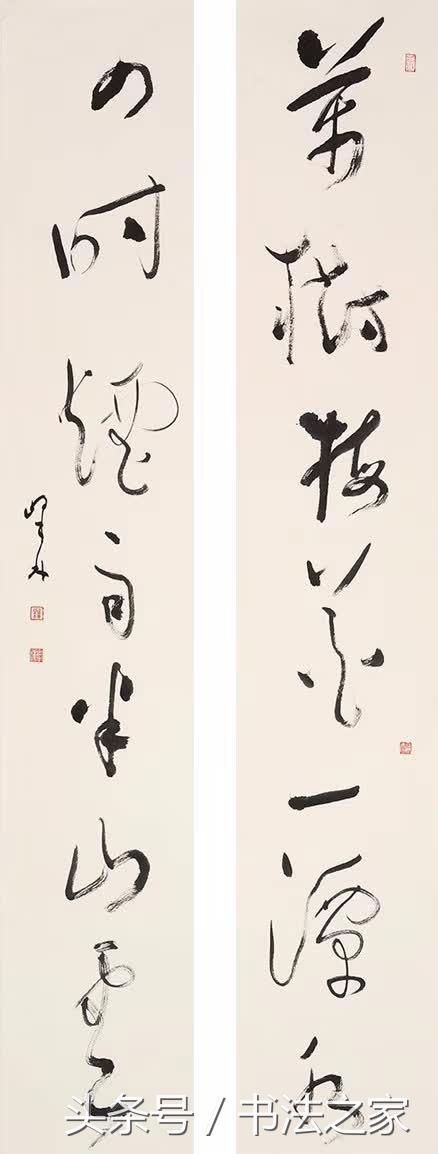 萬樹梅花一潭水
四時煙雨半山雲
头条号 / 书法之家